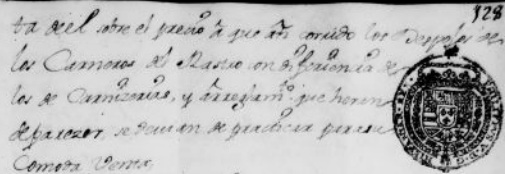 328
ta de el sobre el precio â que an corrido los Despojos de
los Carneros del Rastro con diferiencia de
los de Carnizerias, y arreglamto que heran
de parezer, se devian de practicar para su
Comoda Venta